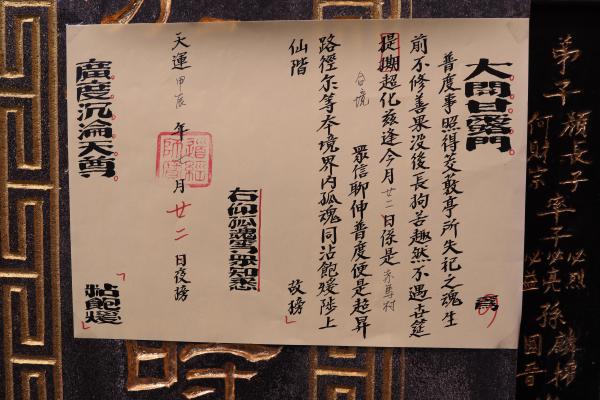 弟子顏長子率子必烈
何財宗
必亮孫麟
必益圓音
大開甘露門
為
普度事照得茭敦亭所失祀之魂生
前不修善果没後長拘苦趣然不遇吉筵
提撕超化茲逢今月廿二日係是赤馬村
合境 眾信聊伸普度便是超昇
路徑尔等本境界内孤魂同沾飽煖陟上
仙階 故榜
右仰孤魂等眾知悉
天運甲辰年 月廿二日夜榜
廣度沉淪天尊
沾飽煖